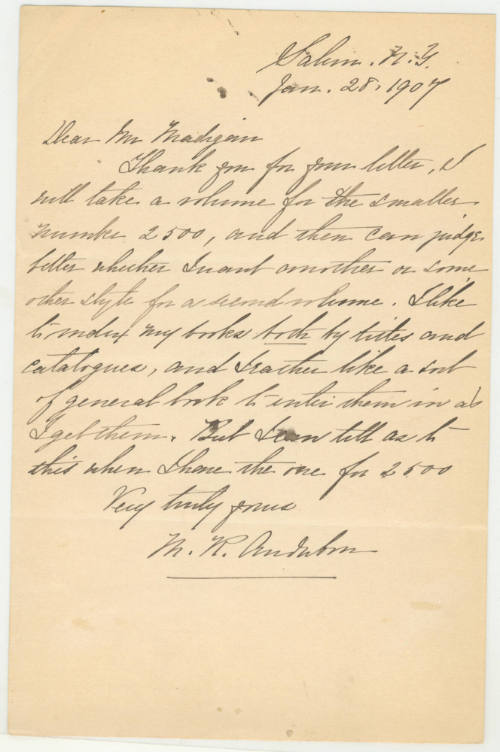 Salem. N.Y.
Jan. 28. 1907
Dear Mr Madigan
Thank you for your letter, I
will take a volume for the smaller
number 2500, and then can judge
better whether I want another or some
other style for a second volume. I like
to index my books both by titles and
catalogues, and I rather like a sort
of general book to enter them in as
I get them. But I can tell as to
this when I have the one for 2500
Very truly yours
M. R. Audubon